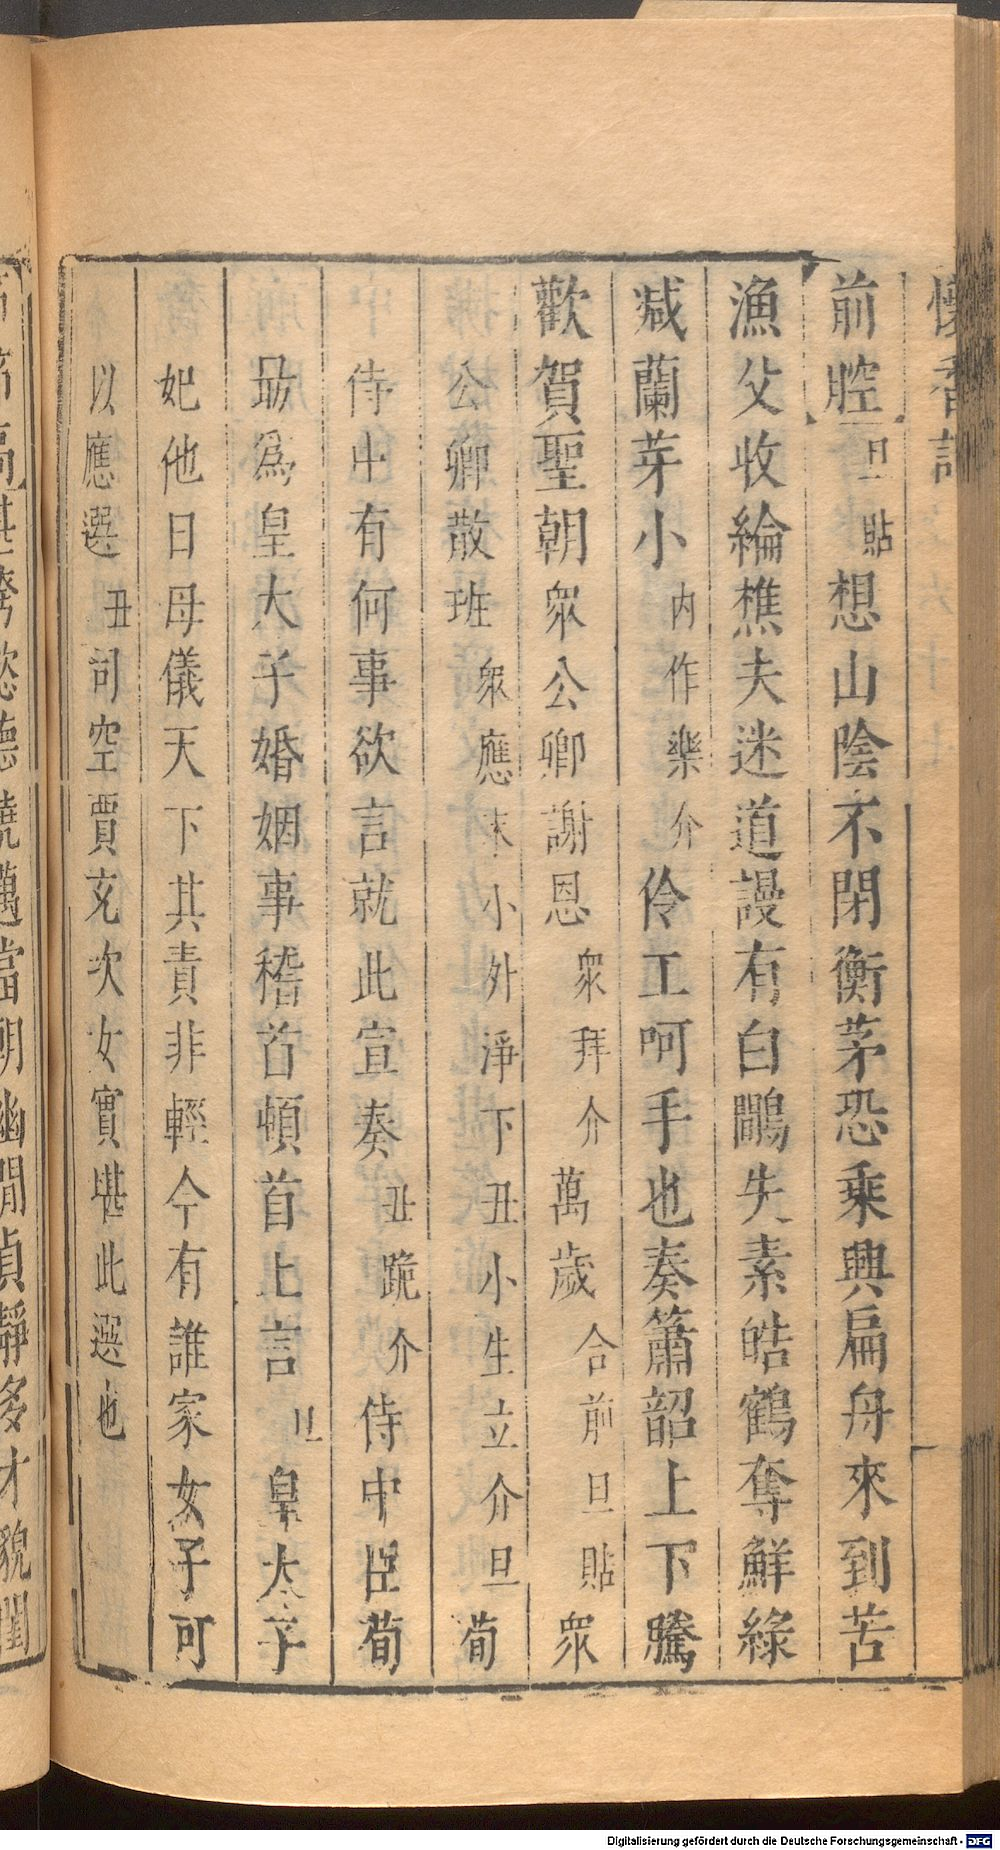 懷香記
前腔旦貼想山陰不閉衡茅恐乘興扁舟來到苦
漁父收綸樵夫迷道謾有白鷴失素皓鶴奪鮮綠
减蘭芽小內作樂介伶工呵手也奏簫韶上下騰
歡賀聖朝衆公卿謝恩衆拜介萬歲合前旦貼衆
公卿散班衆應末小外淨下丑小生立介旦荀
侍中有何事欲言就此宣奏丑跪介侍中臣荀
勗爲皇太子婚姻事稽首頓首上言旦皇太子
妃他日母儀天下其責非輕今有誰家女子可
以應選丑司空賈充次女實堪此選也
堪誇懿德饒邁當朝幽閒貞靜多才貌閨
Digitalisierung gefördert durch die Deutsche Forschungsgemeinschaft - DFG